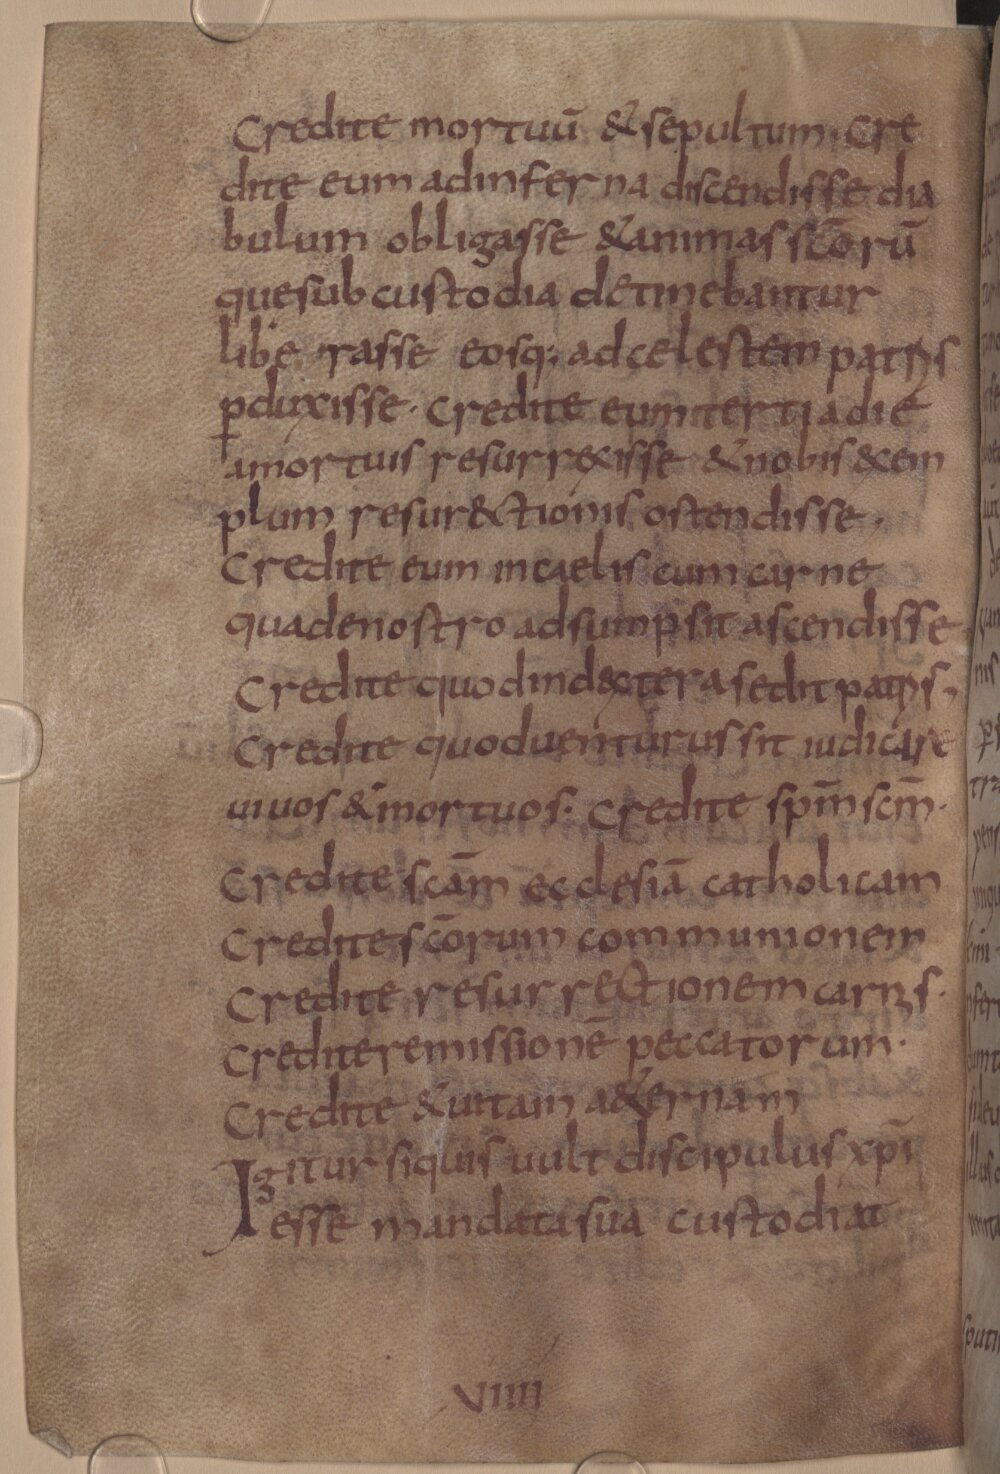 Credite mortuū & sepultum· Cre
dite eum adinferna discendisse dia
bulum obligasse & animas scōrū
quesub custodia detinebantur
liberasse eosq; adcelestem patris
pduxisse· Credite eum tertia die
amortuis resurrexisse & nobis exem
plum resur&ctionis ostendisse·
Credite eum in caelis cum carne
quadenostro adsumpsit ascendisse
Credite quod indextera sedit patris·
Credite quod uenturus sit iudicare
uiuos & mortuos· Credite spm̄ scm̄·
Credite scām ecclesiā catholicam
Credite scōrum communionem
Credite resurrectionem carnis·
Credite remissionē peccatorum·
Credite & uitam a&ernam
Igitur siquis uult discipulus xpī
esse mandata sua custodiat
VIIII